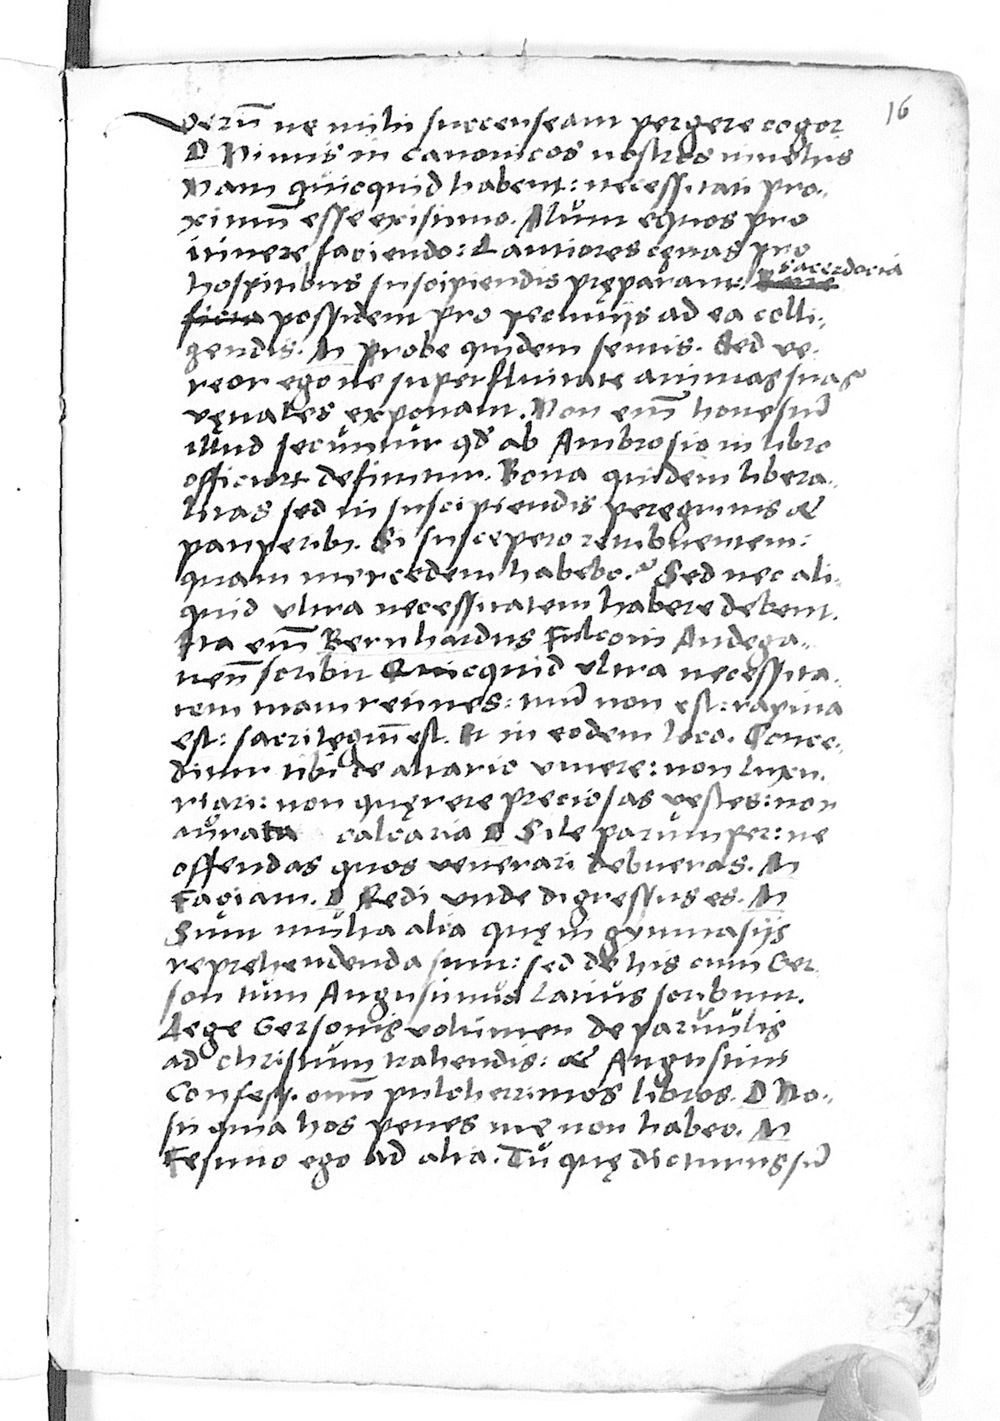 16
verū ne mihi succenseam pergere cogor
D Nimis in canonicos nostros inueheris
Nam quicquid habent: necessitati pro-
ximū esse existimo. Alunt equos pro
itinere faciendo: Lautiores cęnas pro
hospitibus suscipiendis pręparant: sacerdocia
possident pro pecunijs ad ea colli-
gendis. M Probe quidem sentis. Sed ve-
reor ego ne superfluitate animas suas
vęnales exponant. Non enī honestū
illud secuntur qd ab Ambrosio in libro
officiorꝝ definitur. Bona quidem libera-
litas sed in suscipiendis peregrinis &
pauperibꝫ. Si suscepero retribuentem:
quam mercedem habebo? Sed nec ali-
quid ultra necessitatem habere debent.
Ita enī Bernhardus Fulconi Andega-
uenn̄ scribit Quicquid ultra necessita-
tem tuam retines: tuū non est: rapina
est: sacrilegiū est. Et in eodem loco. Conce-
ditur tibi de altario viuere: non luxu-
riari: non quęrere preciosas vestes: non
aurata calcaria D Sile parumper: ne
offendas quos venerari debueras. M
Faciam. D Redi unde digressus es. M
Sunt multa alia quę in gymnasijs
reprehendenda sunt: sed de his cum Ger-
son tum Augustinus latius scribunt.
Lege Gersonis volumen de paruulis
ad christum trahendis: & Augustini
Confess. omn̄ pulcherrimos libros. D No-
sti quia hos penes me non habeo. M
Festino ego ad alia. Tu quę dicturus sū